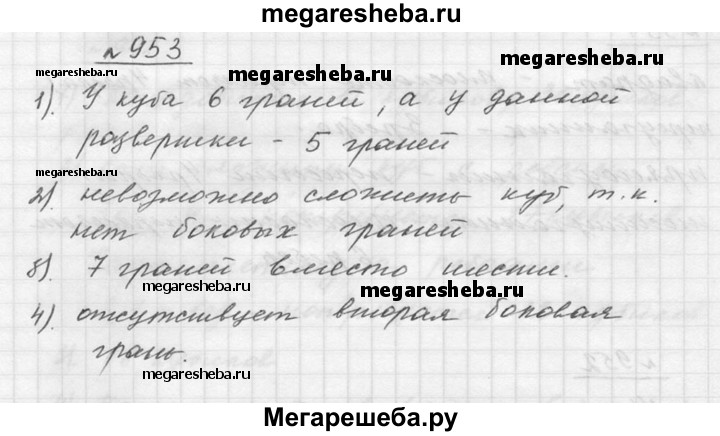 megaresheba.ru
№953
megaresheba.ru
megaresheba.ru
1). У куба 6 граней, а у данной
развертки - 5 граней
2). невозможно сложить куб, т.к.
megaresheba.ru
нет боковых граней
3). 7 граней вместо шести.
megaresheba.ru
4). отсутствует вторая боковая
грань.
megaresheba.ru
megaresheba.ru
Мегарешеба.ру